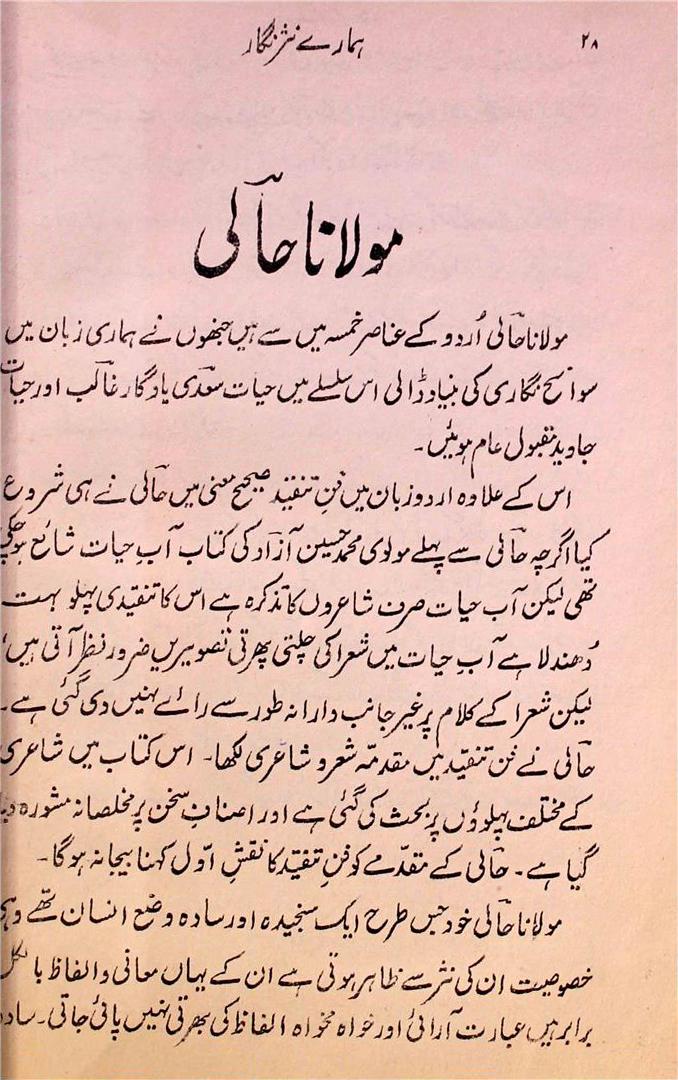 ۲۸
ہمارے نثر نگار
مولانا حاؔلی
مولانا حاؔلی اُردو کے عناصر خمسہ میں سے ہیں جنھوں نے ہماری زبان میں
سوانح نگاری کی بنیاد ڈالی اس سلسلے میں حیات سعدؔی یادگار غالبؔ اور حیات
جاوید مقبول عام ہوئیں۔
اس کے علاوہ اردو زبان میں فنِ تنقید صحیح معنی میں حاؔلی نے ہی شروع
کیا اگرچہ حاؔلی سے پہلے مولوی محمد حسین آزادؔ کی کتاب آبِ حیات شائع ہوچکی
تھی لیکن آب حیات صرف شاعروں کا تذکرہ ہے اس کا تنقیدی پہلو بہت
دُھندلا ہے آبِ حیات میں شعرا کی چلتی پھرتی تصویریں ضرور نظر آتی ہیں،
لیکن شعرا کے کلام پر غیر جانب دارانہ طور سے رائے نہیں دی گئی ہے۔
حاؔلی نے فن تنقید میں مقدمہ شعر و شاعری لکھا۔ اس کتاب میں شاعری
کے مختلف پہلوؤں پر بحث کی گئی ہے اور اصنافِ سخن پر مخلصانہ مشورہ دیا
گیا ہے۔ حالی کے مقدّمے کو فنِ تنقید کا نقشِ اوّل کہنا بیجا نہ ہوگا۔
مولانا حاؔلی خود جس طرح ایک سنجیدہ اور سادہ وضع انسان تھے وہی
خصوصیت ان کی نثر سے ظاہر ہوتی ہے ان کے یہاں معانی و الفاظ بالکل
برابر ہیں عبارت آرائی اور خواہ مخواہ الفاظ کی بھرتی نہیں پائی جاتی۔ سادہ